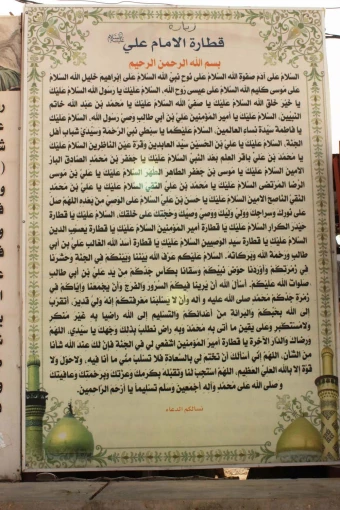 زيارة
قطارة الامام علي
بسم الله الرحمن الرحيم
السلام على آدم صفوة الله السلام على نوح نبي الله السلام على إبراهيم خليل الله السلام
على موسى كليم الله السلام على عيسى روح الله، السلام عليك يا رسول الله السلام عليك
يا خير خلق الله السلام عليك يا صفي الله السلام عليك يا محمد بن عبد الله خاتم
النبيين، السلام عليك يا أمير المؤمنين علي بن أبي طالب وصي رسول الله، السلام عليك
يا فاطمة سيدة نساء العالمين، السلام عليكما يا سبطي نبي الرحمة وسيدي شباب أهل
الجنة، السلام عليك يا علي بن الحسين سيد العابدين وقرة عين الناظرين السلام عليك
يا محمد بن علي باقر العلم بعد النبي السلام عليك يا جعفر بن محمد الصادق البار
الامين السلام عليك يا موسى بن جعفر الطاهر الطهر السلام عليك يا علي بن موسى
الرضا المرتضى السلام عليك يا محمد بن علي التقي السلام عليك يا علي بن محمد
النقي الناصح الامين السلام عليك يا حسن بن علي السلام على الوصي من بعده اللهم صل
على نورك وسراجك وولي وليك ووصي وصيك وحجتك على خلقك، السلام عليك يا قطارة
حيدر الكرار السلام عليك يا قطارة أمير المؤمنين السلام عليك يا قطارة يعسب الدين
السلام عليك يا قطارة سيد الوصيين السلام عليك يا قطارة أسد الله الغالب علي بن أبي
طالب ورحمة الله وبركاته، السلام عليكم عرف الله بيننا وبينكم في الجنة وحشرنا
في زمرتكم وأوردنا حوض نبيكم وسقانا بكأس جدكم من يد علي بن أبي طالب
صلوات الله عليكم، أسأل الله أن يرينا فيكم السرور والفرج وأن يجمعنا وإياكم في
زمرة جدكم محمد صلى الله عليه و آله وأن لا يسلبنا معرفتكم إنه ولي قدير، أتقرب
إلى الله بحبكم والبرائة من أعدائكم والتسليم إلى الله راضيا به غير منكر
ولامستكبر وعلى يقين ما أتى به محمد وبه راض نطلب بذلك وجهك يا سيدي، اللهم
ورضاك والدار الآخرة يا قطارة أمير المؤمنين اشفعي لي في الجنة فإن لك عند الله شأنا
من الشأن، اللهم إني أسألك أن تختم لي بالسعادة فلا تسلب مني ما أنا فيه، ولاحول ولا
قوة إلا بالله العلي العظيم، اللهم استجب لنا وتقبله بكرمك وعزتك وبرحمتك وعافيتك
و صلى الله على محمد وآله أجمعين وسلم تسليما يا أرحم الراحمين.
نسالكم الدعاء